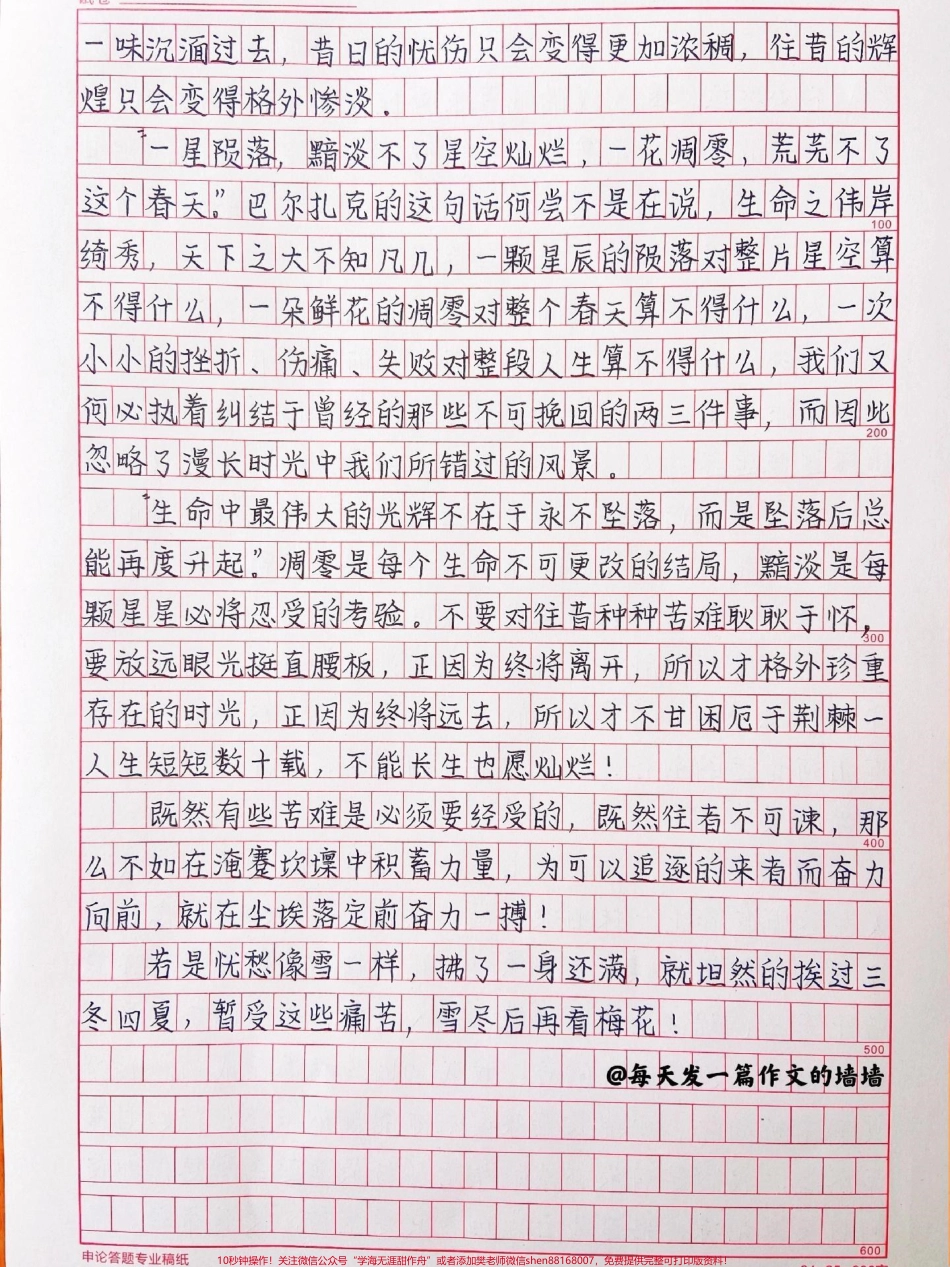 一味沉湎过去，昔日的忧伤只会变得更加浓稠，往昔的辉
煌只会变得格外惨淡.
“一星陨落，黯淡不了星空灿烂，一花凋零，荒芜不了
这个春天。”巴尔扎克的这句话何尝不是在说，生命之伟岸
100
绮秀，天下之大不知凡几，一颗星辰的陨落对整片星空算
不得什么，一朵鲜花的凋零对整个春天算不得什么，一次
小小的挫折、伤痛、失败对整段人生算不得什么，我们又
何必执着纠结于曾经的那些不可挽回的两三件事，而因此
200
忽略了漫长时光中我们所错过的风景。
“生命中最伟大的光辉不在于永不坠落，而是坠落后总
能再度升起。”凋零是每个生命不可更改的结局，黯淡是每
颗星星必将忍受的考验。不要对往昔种种苦难耿耿于怀，
300
要放远眼光挺直腰板，正因为终将离开，所以才格外珍重
存在的时光，正因为终将远去，所以才不甘困厄于荆棘一
人生短短数十载，不能长生也愿灿烂！
既然有些苦难是必须要经受的，既然往者不可谏，那
400
么不如在淹蹇坎壈中积蓄力量，为可以追逐的来者而奋力
向前，就在尘埃落定前奋力一搏！
若是忧愁像雪一样，拂了一身还满，就坦然的挨过三
冬四夏，暂受这些痛苦，雪尽后再看梅花！
500
@每天发一篇作文的墙墙
600
申论答题专业稿纸
10秒钟操作！关注微信公众号“学海无涯甜作舟”或者添加樊老师微信shen88168007，免费提供完整可打印版资料！